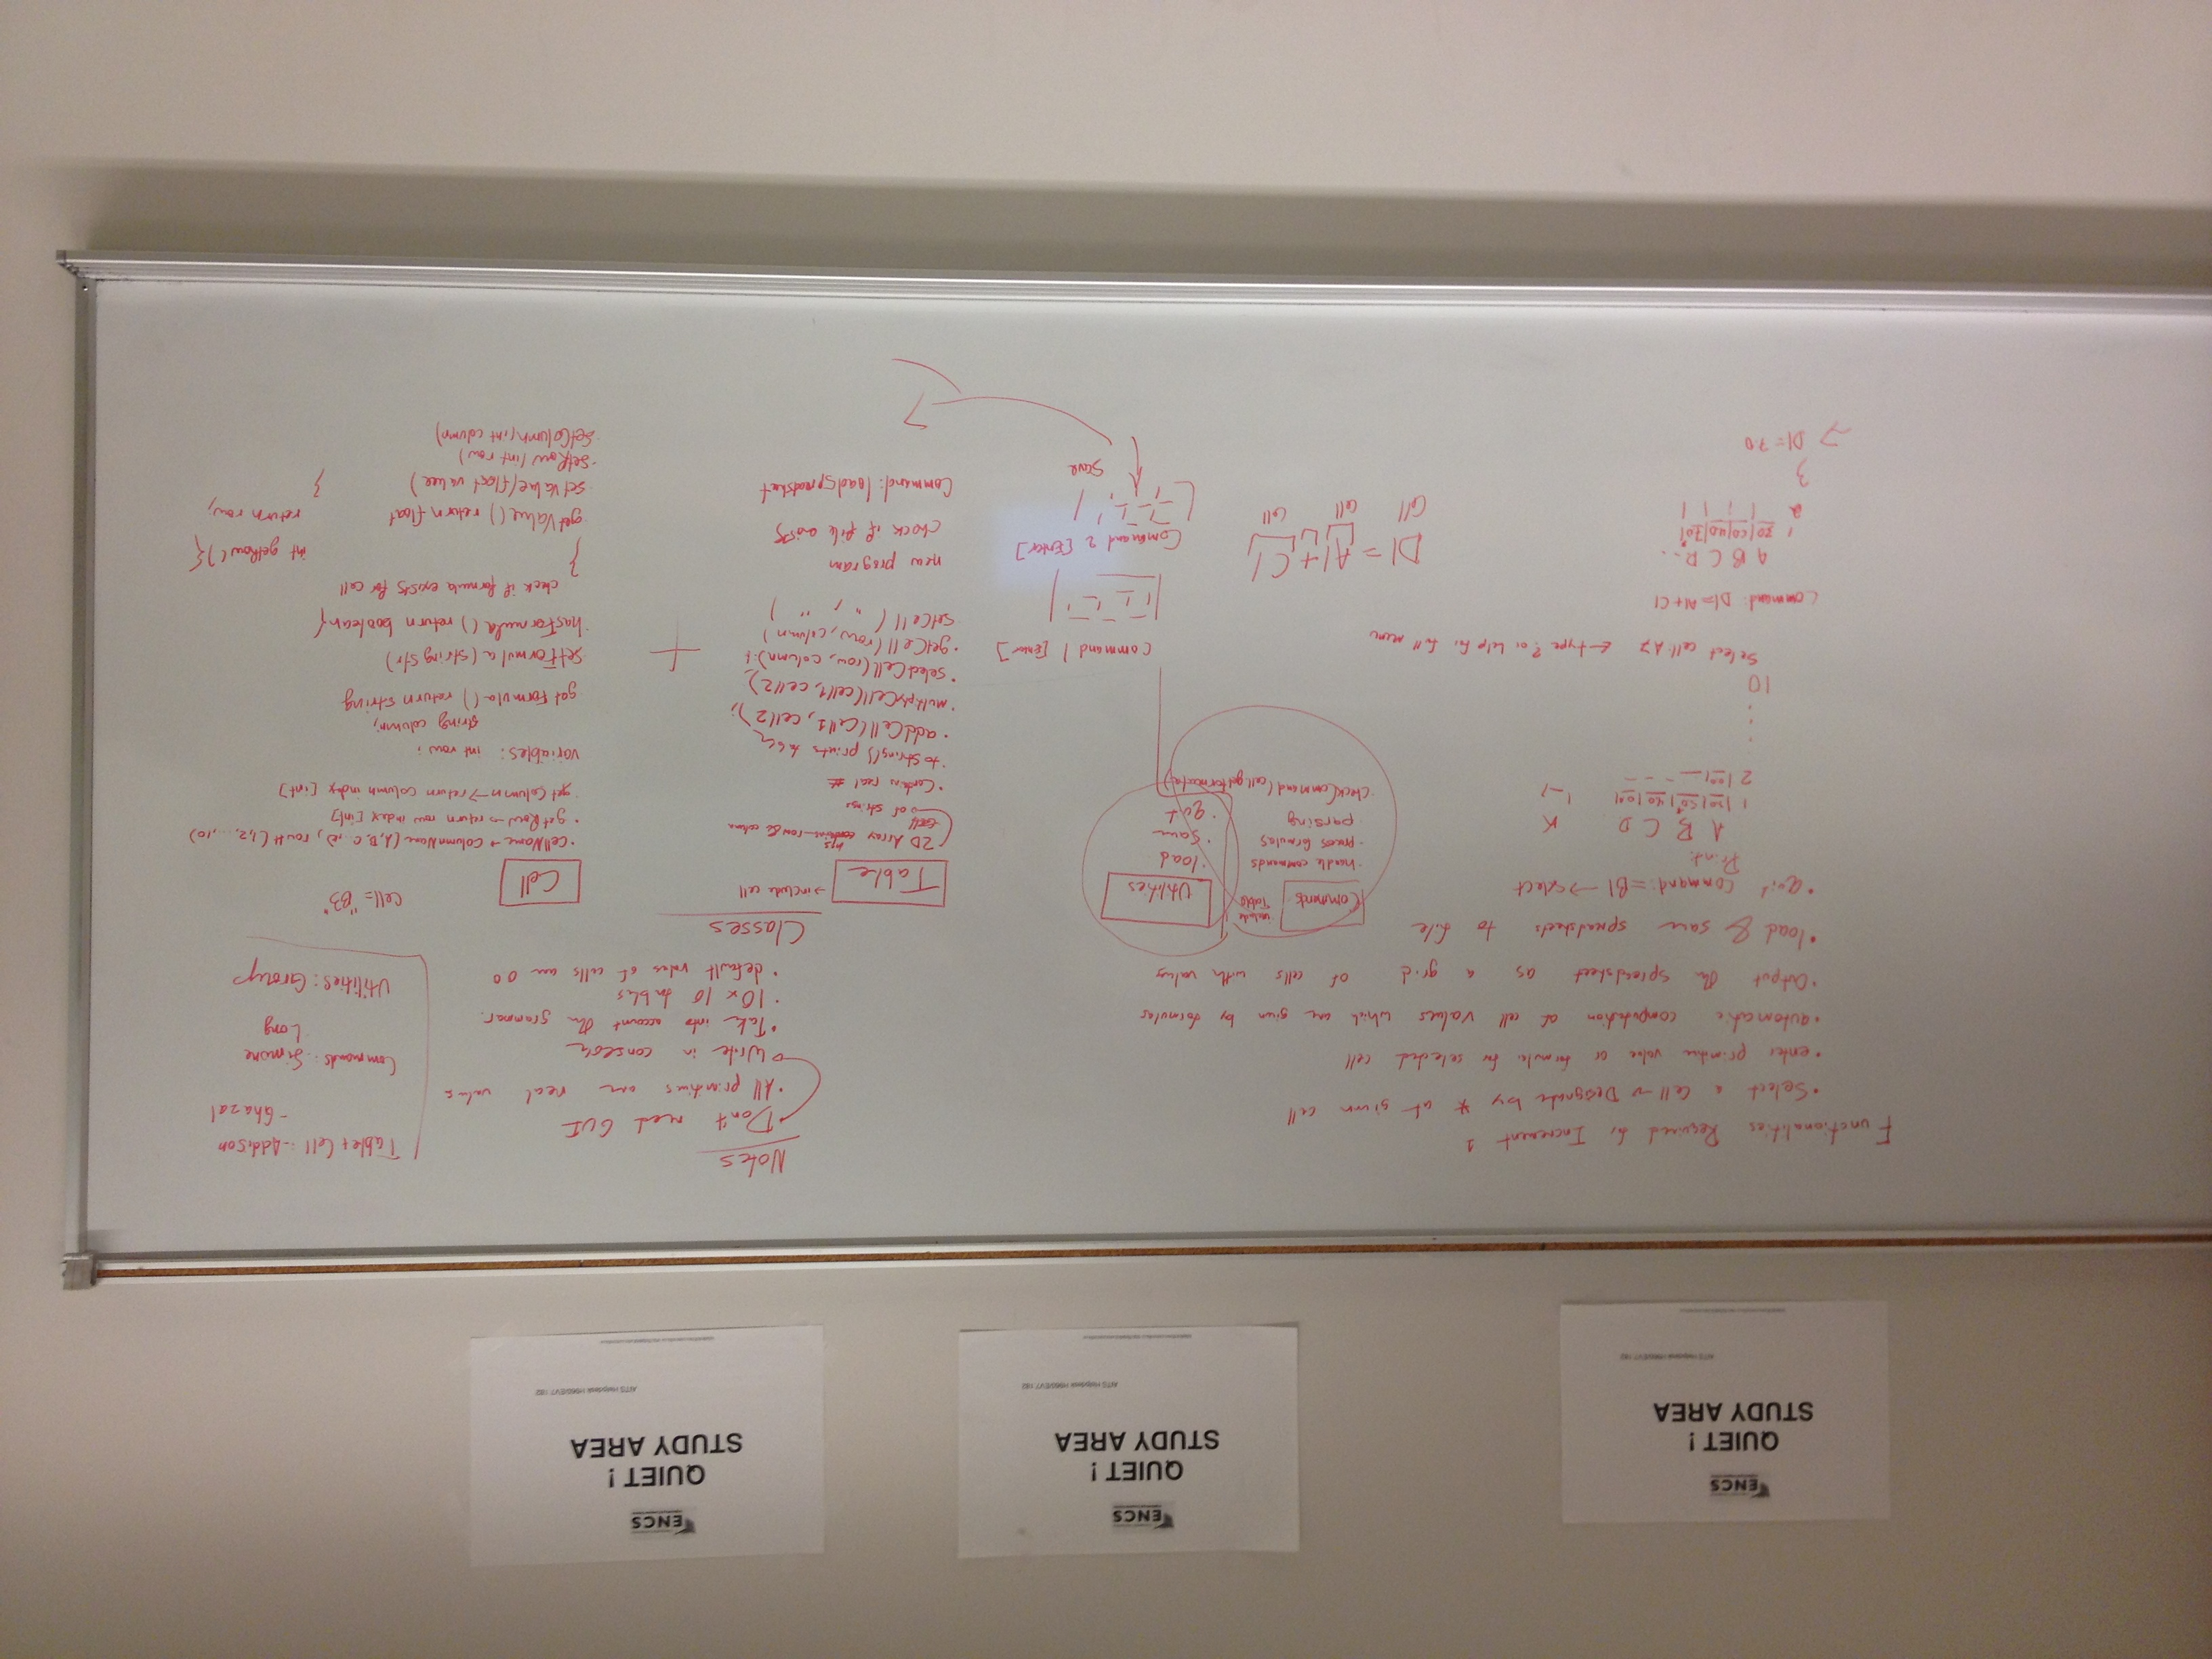 ENCS
QUIET !
STUDY AREA
AITS Helpdesk H960/EV7.182
ENCS
QUIET !
STUDY AREA
AITS Helpdesk H960/EV7.182
ENCS
QUIET !
STUDY AREA
AITS Helpdesk H960/EV7.182
Functionalities Required for Increment 1
• Select a cell → Designate by * at given cell
• enter primitive value or formula for selected cell
• automatic computation of cell values which are given by formulas
• Output the spreadsheet as a grid of cells with values
• load & save spreadsheets to file
• quit command:=B1 → select
Print:
A B C D K
1
2
10
Select cell: A7 ← type ? or help for full menu
Command: D1=A1+C1
A B C D..
1
2
3
→ D1= 7.0
Commands
include Table
• handle commands
- process formulas
parsing
• checkCommand(cell.getformula)
Utilities
• load
• save
• quit
D1 = A1 + C1
Cell cell cell
Command 1 [Enter]
Command 2 [Enter]
save
Notes
Don't need GUI
• All primitives are real values
Write in console
• Take into account the grammar.
• 10 x 10 tables
• default values of cells are 0.0
Table + Cell : - Addison
- Ghazal
Commands: Simone
Long
Utilities: Group
Classes
Table → include cell
• 2D Array contains row & column
of strings
• Contains real #
• to String() prints table
• addCell(cell1, cell2);
• multiplyCell(cell1, cell2)
• selectCell(row, column):
• getCell(row, column)
setCell ( " , " )
new program
check if file exists
Command: load spreadsheet
+
Cell
cell= "B3"
• cellName → columnName (A,B,C..,K), row# (1,2,...,10)
• getRow → return row index [int]
getColumn → return column index [int]
variables: int row;
string column;
getFormula() return string
setFormula(string str)
hasFormula() return boolean{
check if formula exists for cell
}
getValue() return float
setValue(float value)
• setRow(int row)
• setColumn(int column)
int getRow(){
return row;
}